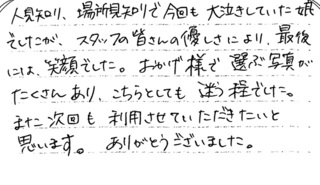 人見知り、場所見知りで今回も大泣きしていた娘
でしたが、スタッフの皆さんの優しさにより、最後
には、笑顔でした。おかげ様で選ぶ写真が
たくさんあり、こちらとしても迷う程でした。
また次回も利用させていただきたいと
思います。ありがとうございました。